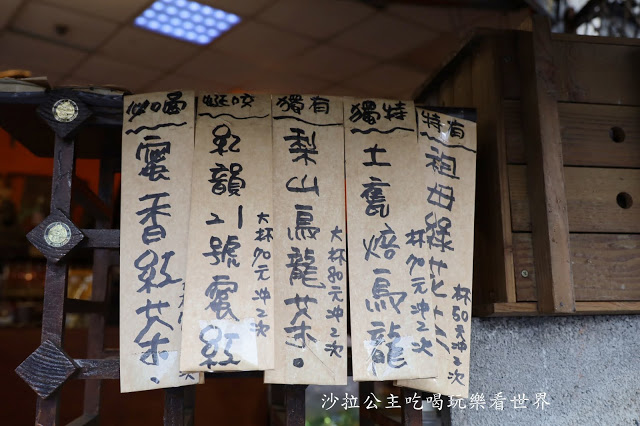 必喝
蜜香紅茶.
紅韻21號蜜紅
大杯70元沖2次
獨有
梨山烏龍茶.
大杯80元沖2次
獨特
土甕焙烏龍
杯70元沖2次
特有
祖母綠花茶
杯50元沖2次
沙拉公主吃喝玩樂看世界